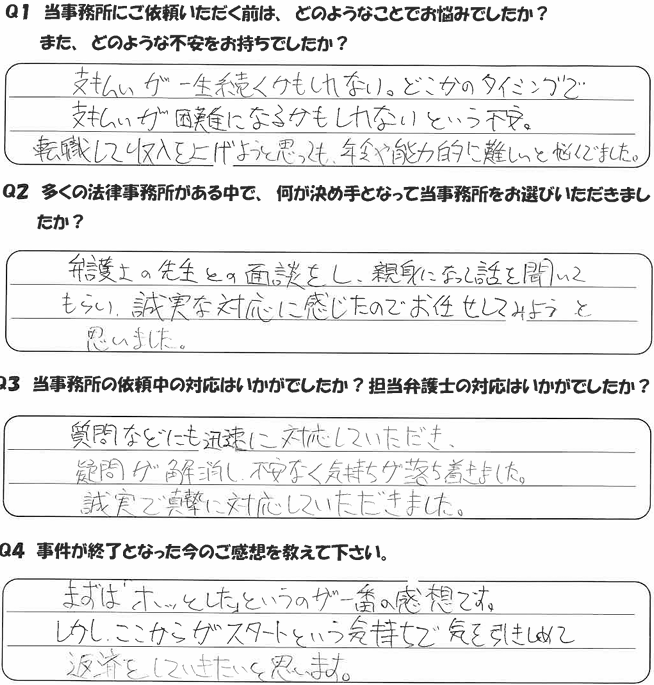 Q1 当事務所にご依頼いただく前は、どのようなことでお悩みでしたか？
また、どのような不安をお持ちでしたか？
支払いが一生続くかもしれない。どこかのタイミングで
支払いが困難になるかもしれないという不安。
転職して収入を上げようと思っても、年令や能力的に難しいと悩んでました。
Q2 多くの法律事務所がある中で、何が決め手となって当事務所をお選びいただきまし
たか？
弁護士の先生との面談をし、親身になって話を聞いて
もらい、誠実な対応に感じたのでお任せしてみようと
思いました。
Q3 当事務所の依頼中の対応はいかがでしたか？担当弁護士の対応はいかがでしたか？
質問などにも迅速に対応していただき、
疑問が解消し、不安なく気持ちが落ち着きました。
誠実で真摯に対応していただきました。
Q4 事件が終了となった今のご感想を教えて下さい。
まずは「ホッとした」というのが一番の感想です。
しかし、ここからがスタートという気持ちで気を引きしめて
返済をしていきたいと思います。